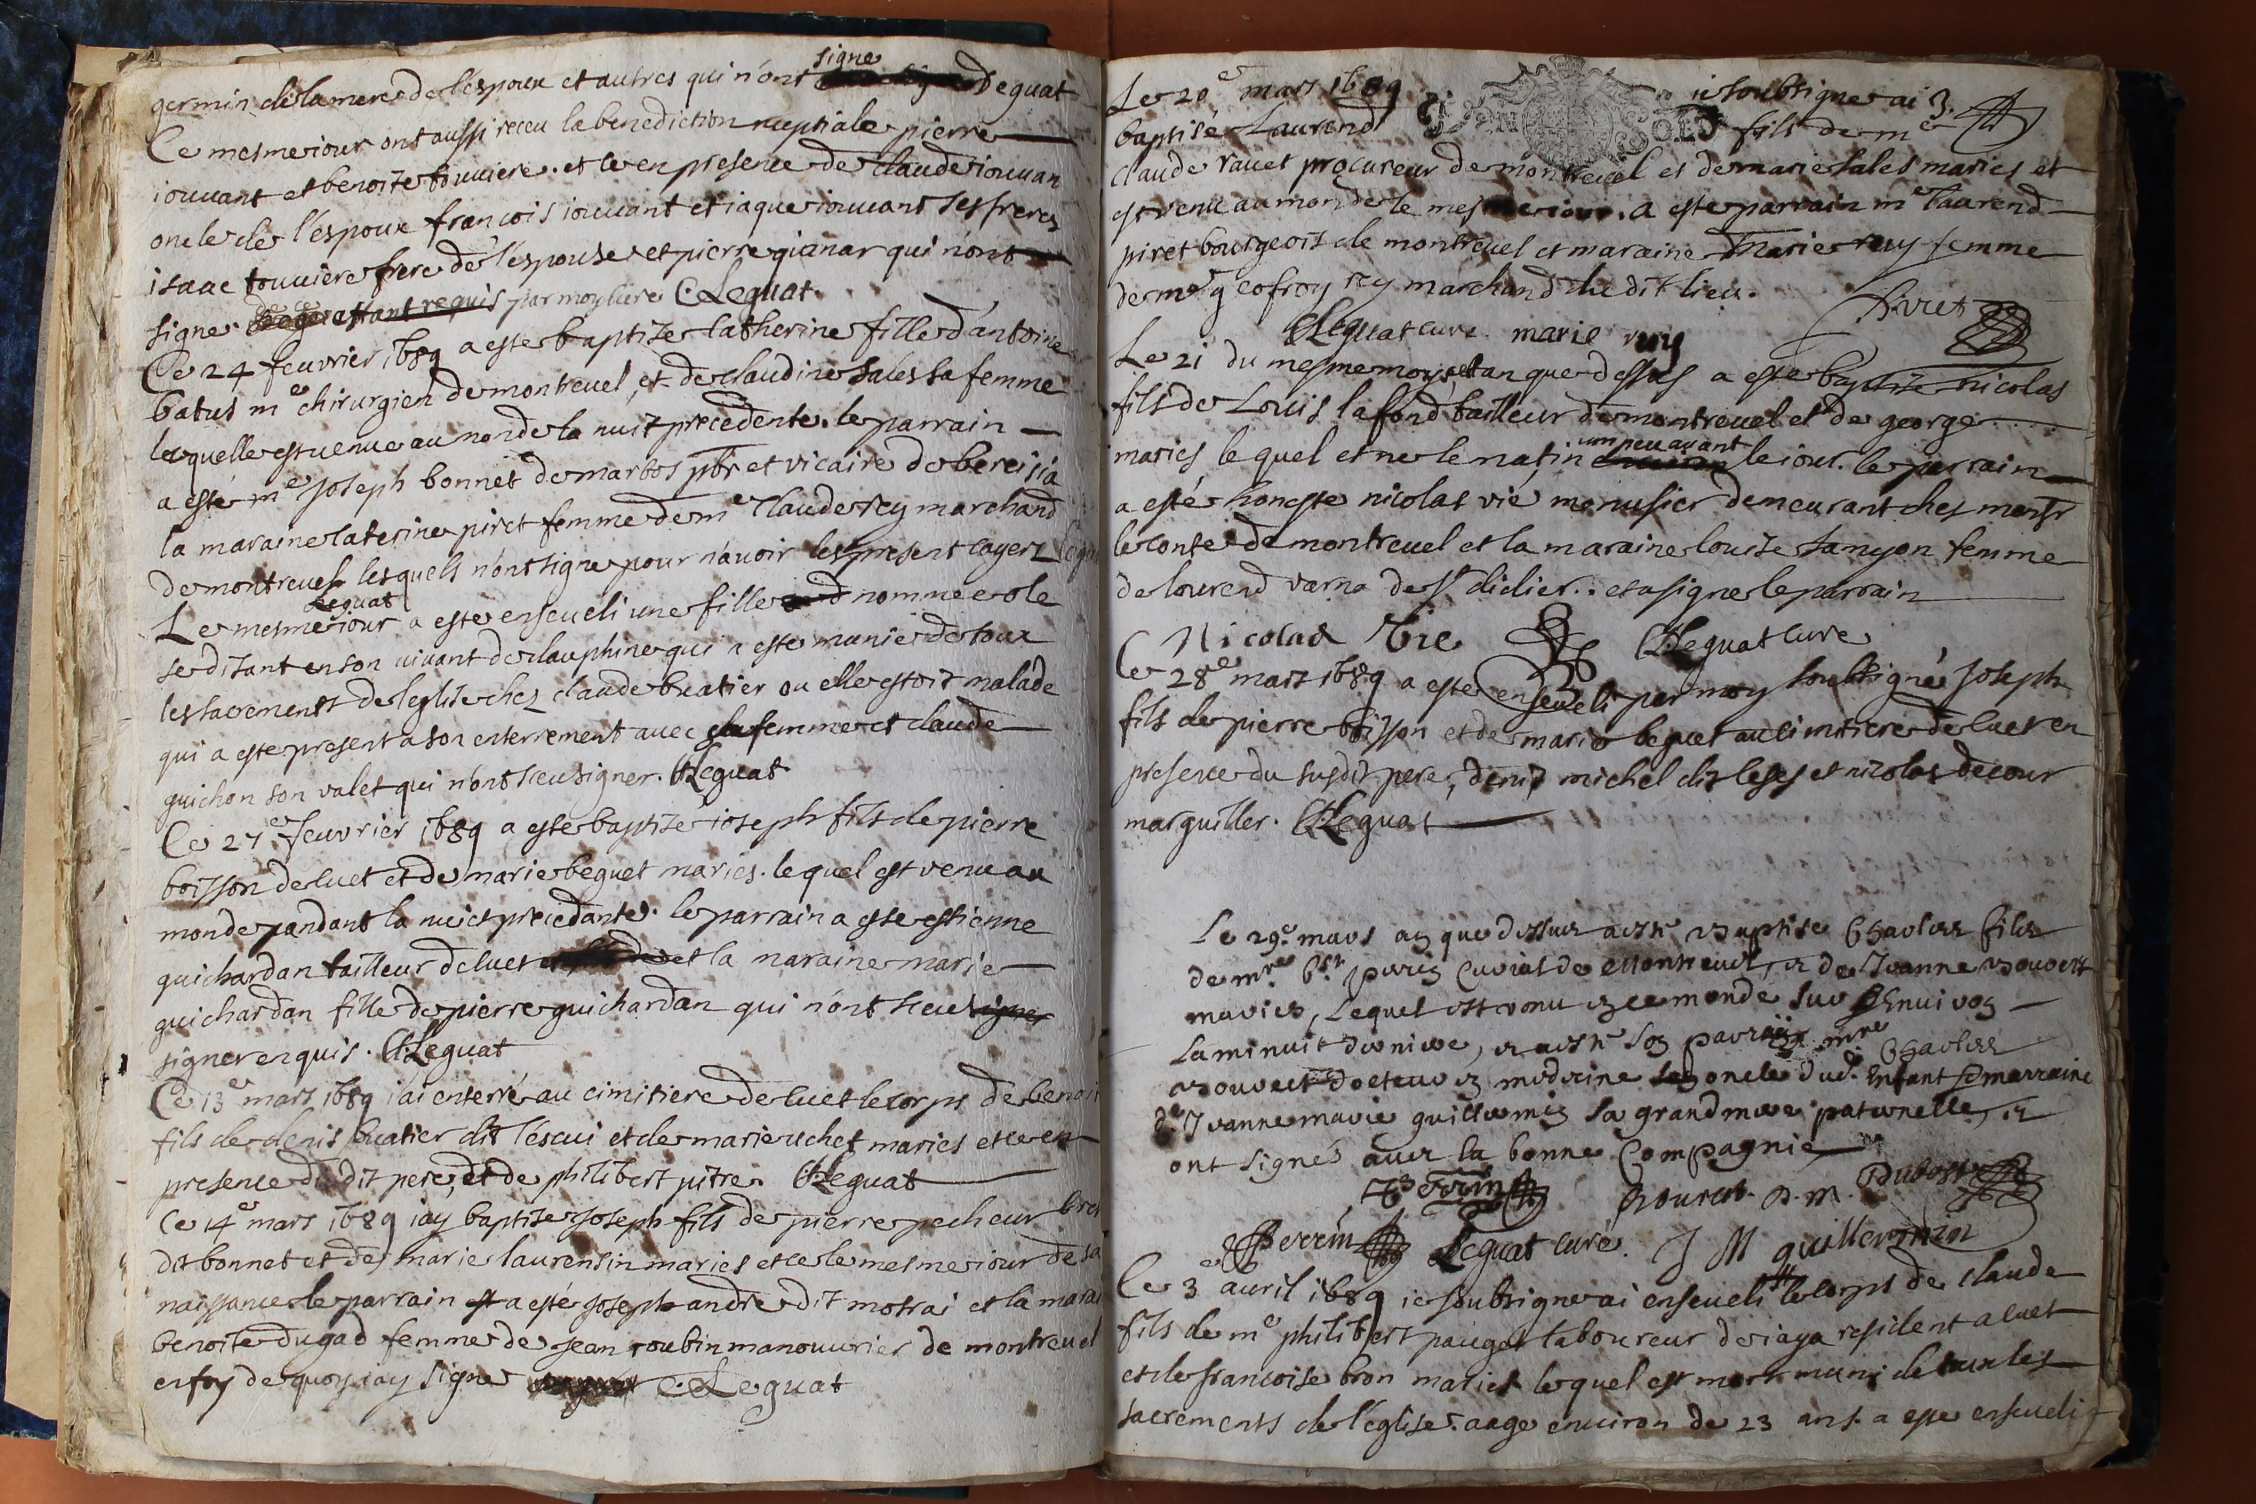 germin de la mere de l'espoux et autres qui n'ont signe Leguat
Ce mesme iour ont aussi receu la benediction nuptiale pierre
iouuant et benoite touuiere. et ce en presence de claude iouuan
oncle de l'espoux francois iouuant et iaque iouuant ses freres
isaac touuiere frere de l'espouse et pierre qui n'ont
signe. estant requis par moy cure C. Leguat
Ce 24e feuurier 1689 a este baptize catherine fille d'antoine
batus me chirurgien de montreuel, et de claudine sales sa femme
laquelle est venue au monde la nuit precedente. le parrain
a esté me joseph bonnet de marbos pbr et vicaire de bereisia
la maraine caterine piret femme de me claude rey marchand
de montreuel lesquels n'ont signe pour n'auoir les present cayerz
Leguat
Le mesme iour a este enseueli une fille nomme
se disant en son viuant de dauphine qui a este munie de toux
les sacrements de leglise chez claude buatier ou elle estoit malade
qui a este present a son enterrement auec sa femme et claude
guichon son valet qui n'ont sceu signer. C. Leguat
Ce 27e feuurier 1689 a este baptize ioseph fils de pierre
boisson de cuet et de marie beguet mariés. lequel est venu au
monde pandant la nuict precedante. le parrain a este estienne
guichardan tailleur de cuet et la maraine marie
guichardan fille de pierre guichardan qui n'ont sceu signer
signer enquis. C. Leguat
Ce 13e mars 1689 i'ai enterré au cimitiere de cuet le corps de benoit
fils de denis buatier dit l'escui et de marie uchet mariés et ce en
presence du dit pere, et de philibert pitre. C. Leguat
Ce 14e mars 1689 iay baptize joseph fils de pierre pecheur
dit bonnet et de marie laurensin mariés et ce le mesme iour de sa
naissance le parrain a esté joseph andre dit motrai et la marai
benoite dugad femme de jean roubin manouurier de montreuel
en foy de quoy iay signe C. Leguat
Le 20e mars 1689 ie soubsigne ai
baptisé Laurend fils de me
claude rauet procureur de montreuel et de marie sales mariés et
est venu au monde le mesme iour. a este parrain me laurend
piret bourgeois de montreuel et maraine marie rey femme
de me geofroy rey marchand du dit lieu.
C. Leguat cure marie rey Piret
Le 21 du mesme mois et an que dessus a este baptize nicolas
fils de Louis lafond tailleur de montreuel et de george
mariés le quel est ne le matin un peu auant le iour. le parrain
a esté honeste nicolas vie menusier demeurant ches monsr
le conte de montreuel et la maraine louise janyon femme
de lourend varna de st didier.. et a signe le parrain
Nicolas Vie C. Leguat cure
Ce 28e mars 1689 a este enseueli par moy soubsigné Joseph
fils de pierre boisson et de marie beguet au cimitiere de cuet en
presence du susdit pere, denis michel dit leses et nicolas decour
marguiller. C. Leguat
Le 29e mars an que dessus a esté baptisé Charles fils
de mre perrin curial de Montreuel, et de Jeanne rouuert
mariés, Lequel est venu en ce monde sur Enuiron
La minuit derniere, et a esté son parrain mre Charles
rouuert docteur en medecine son oncle dud. Enfant et marraine
de Jeanne marie guillermin sa grand mere paternelle, et
ont signés auec la bonne Compagnie
Perrin Rouuert. D. M. Dubost
Perrin Leguat curé. J M guillermin
Ce 3e auril 1689 ie soubsigne ai enseueli le corps de claude
fils de me philibert pauget laboureur de iaya resident a cuet
et de francoise bron mariés lequel est mort muni de toux les
sacrements de l'église. aage enuiron de 23 ans. a este enseueli